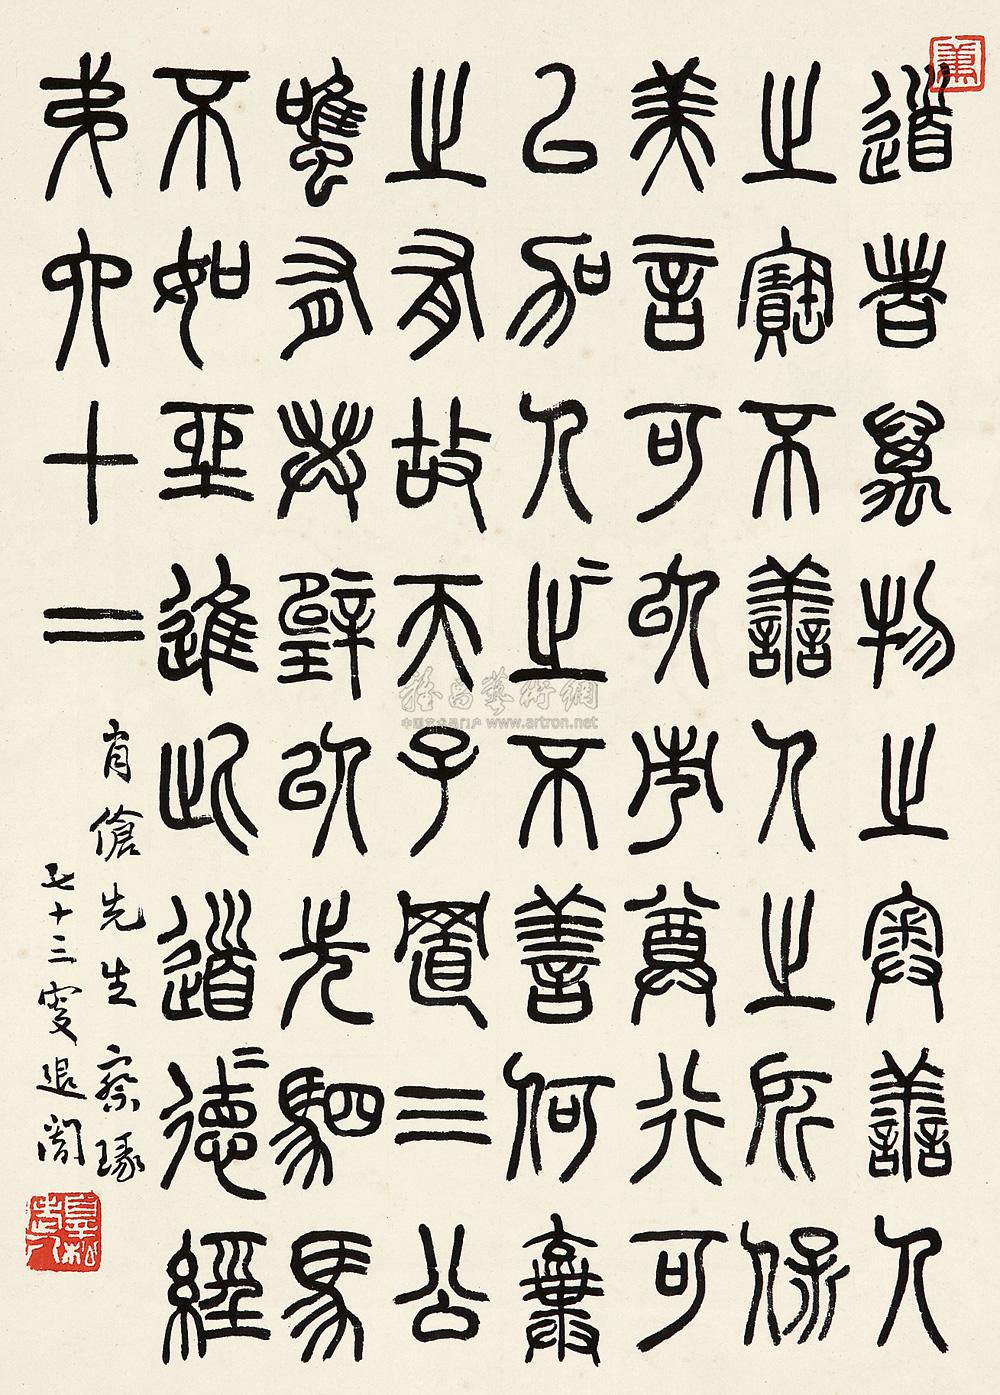 蕭
道者萬物之奧善人
之寶不善人之所保
美言可以市尊行可
以加人之不善何棄
之有故天子置三公
雖有共璧以先駟馬
不如坐進此道德經
弟六十二
肖傖先生察瑑
七十三叟退闇
雅昌藝術網
中国艺术品门户 www.artron.net